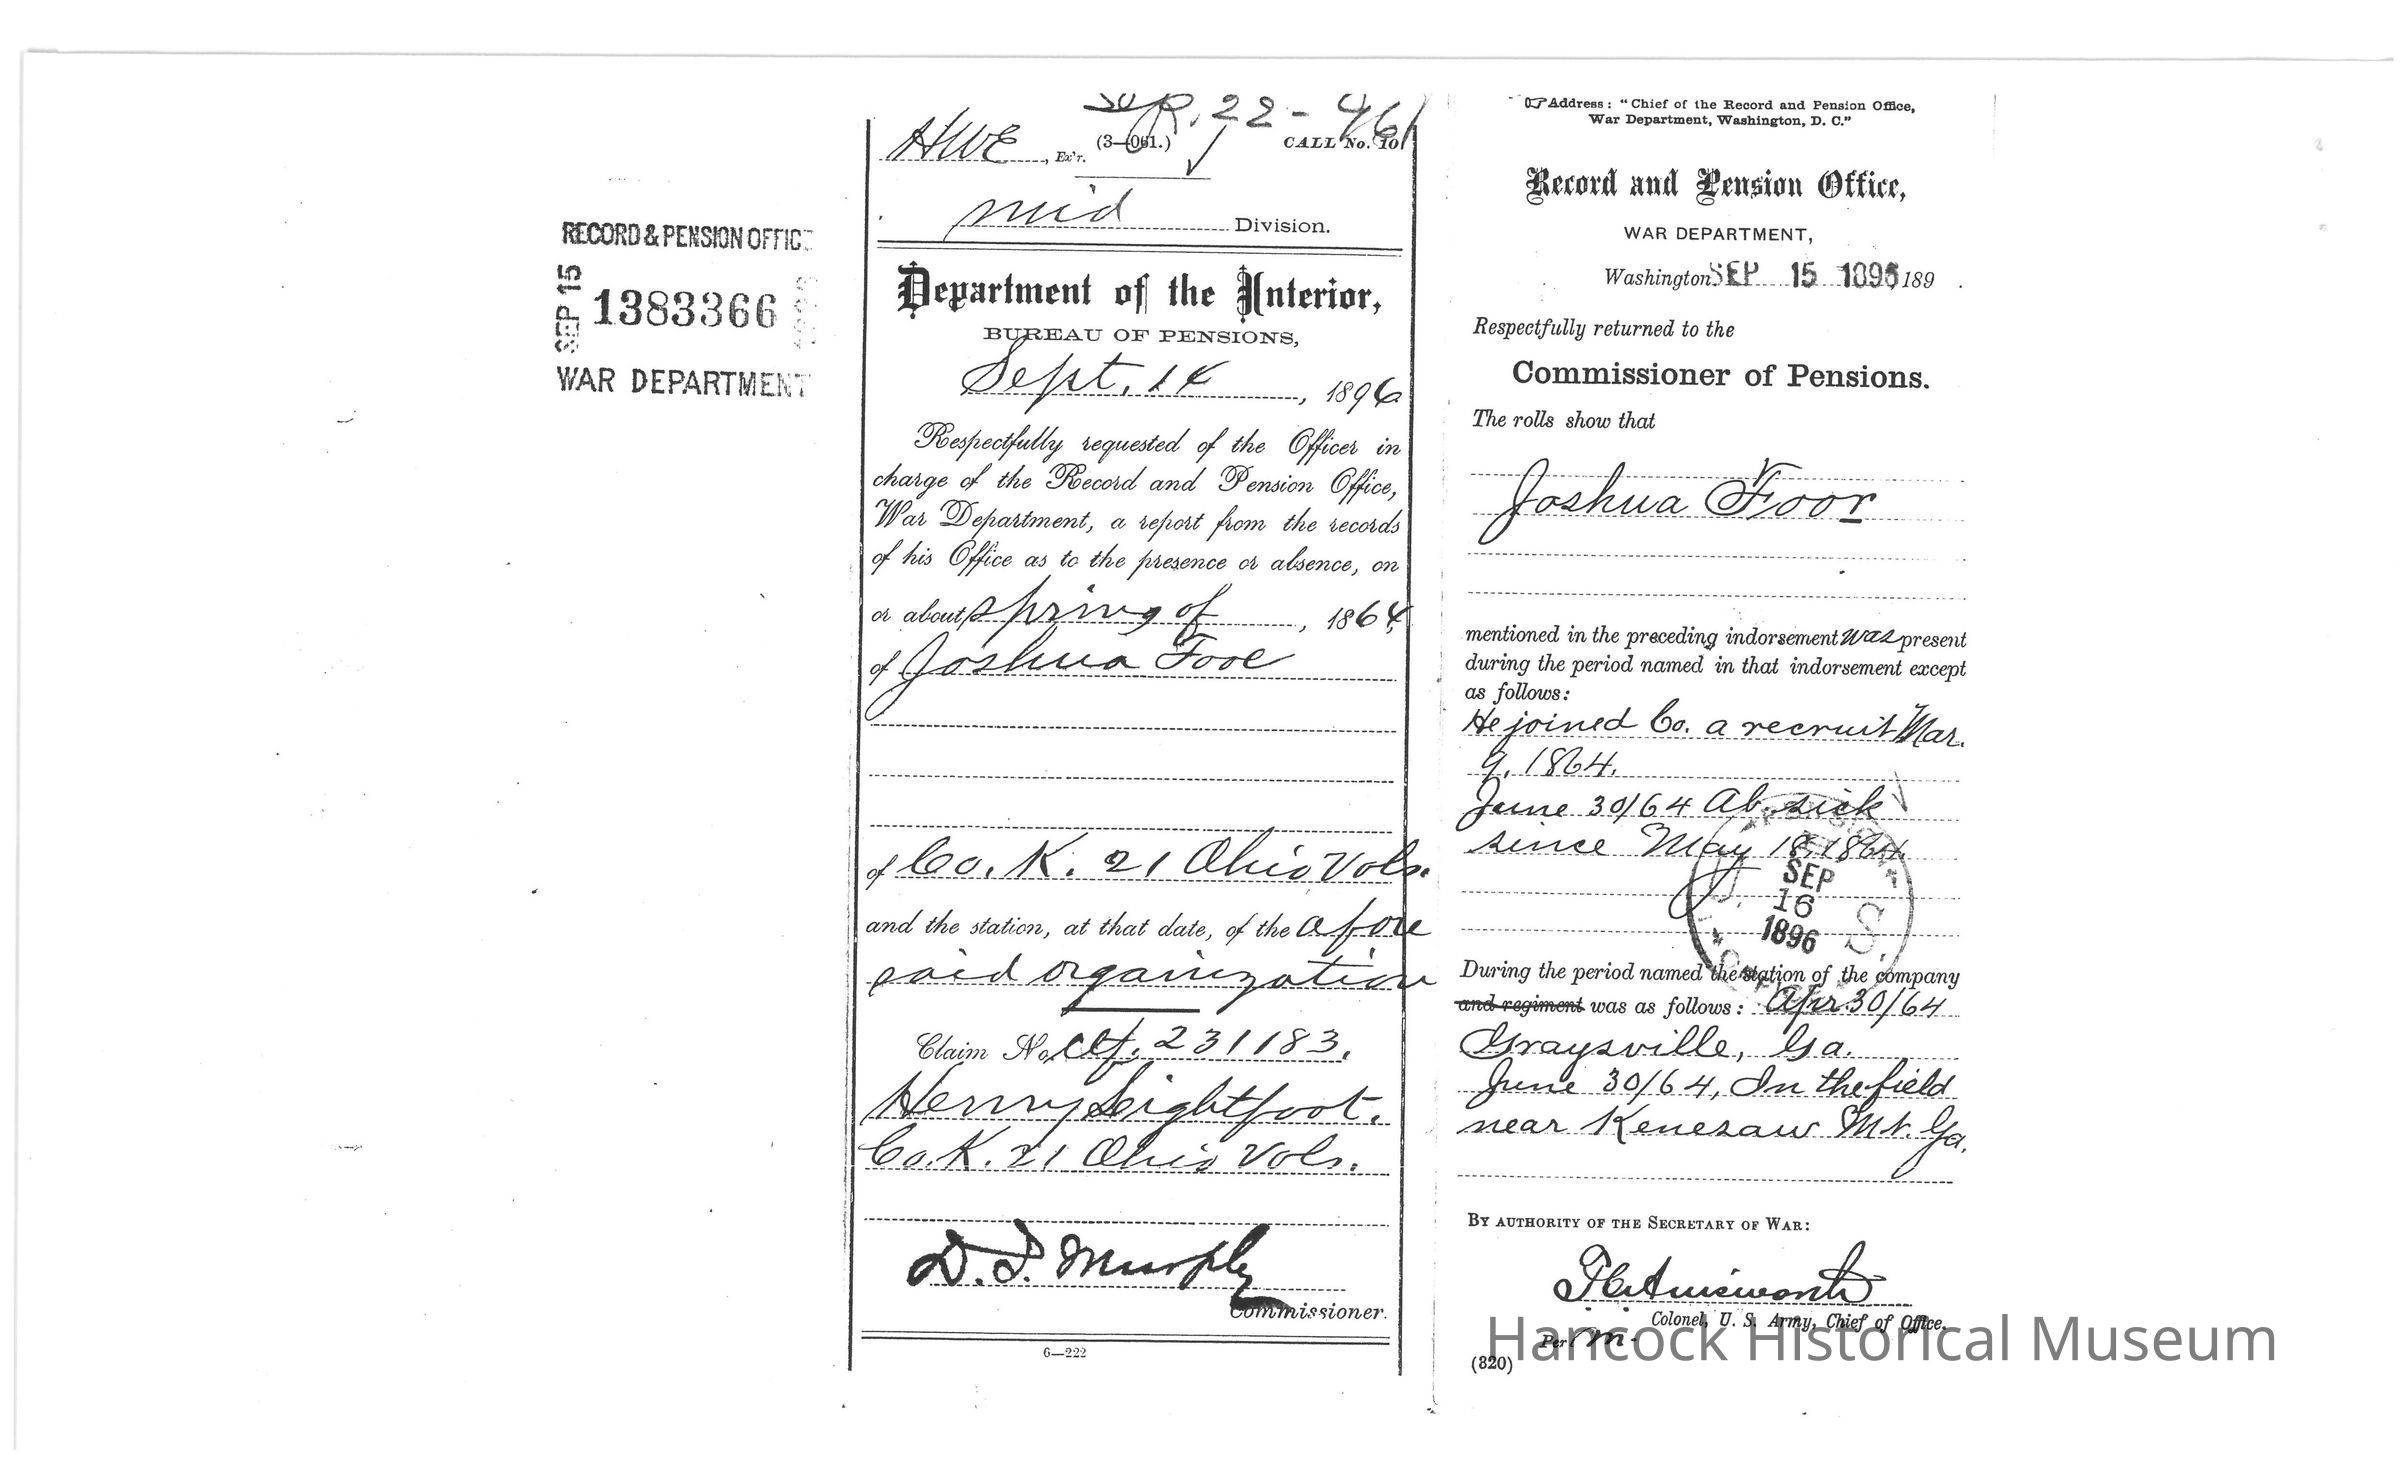 RECORD & PENSION OFFICE
SEP 15
1383366
WAR DEPARTMENT
22-461
HWE, Ex'r.
(3—061.)
CALL No. 10
Mid Division.
Department of the Interior,
BUREAU OF PENSIONS,
Sept. 14, 1896
Respectfully requested of the Officer in
charge of the Record and Pension Office,
War Department, a report from the records
of his Office as to the presence or absence, on
or about spring of, 1864,
of Joshua Foor
of Co. K. 21 Ohio Vols.
and the station, at that date, of the afore
said organization
Claim No. Ctf. 231183.
Henry Lightfoot.
Co. K. 21 Ohio Vols.
D. I. Murphy
Commissioner.
6—222
Address: "Chief of the Record and Pension Office,
War Department, Washington, D. C."
Record and Pension Office,
WAR DEPARTMENT,
Washington SEP 15 1896 189
Respectfully returned to the
Commissioner of Pensions.
The rolls show that
Joshua Foor
mentioned in the preceding indorsement was present
during the period named in that indorsement except
as follows:
He joined Co. a recruit Mar.
9, 1864.
June 30/64 Ab. sick
since May 18, 1864.
SEP
16
1896
U. S.
During the period named the station of the company
and regiment was as follows: Apr 30/64
Graysville, Ga.
June 30/64, In the field
near Kenesaw Mt. Ga.
BY AUTHORITY OF THE SECRETARY OF WAR:
F C Ainsworth
Colonel, U. S. Army, Chief of Office.
Per M.
(320)
Hancock Historical Museum